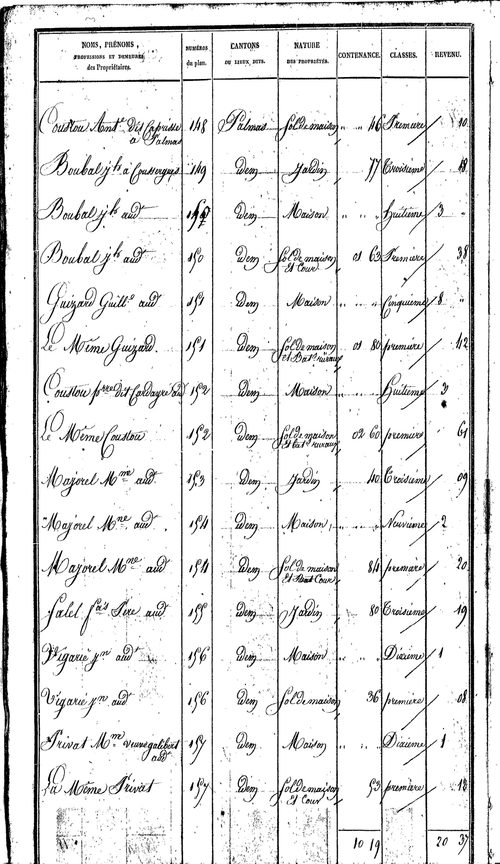 NOMS, PRÉNOMS, PROFESSIONS ET DEMEURES des Propriétaires. NUMÉROS du plan. CANTONS OU LIEUX DITS. NATURE DES PROPRIÉTÉS. CONTENANCE. CLASSES. REVENU.
Coustou Ant.e dit Caprisse a Palmas 148 Palmas Sol de maison " " 46 Premiere / 10
Boubal j.h à Coussergues 149 idem Jardin 77 Troisieme / 18
Boubal j.h aud.t idem Maison " " " huitieme / 3 "
Boubal j.h aud.t 150 idem Sol de maison Et Cour 01 63 Premiere / 38
Guizard Guill.e aud.t 151 idem Maison " " " Cinquieme / 8 "
Le Même Guizard. 151 idem Sol de maison et Bat.t ruraux 01 80 premiere / 42
Coustou p.rre dit Cardayre aud.t 152 idem Maison " " huitieme / 3
Le Même Coustou 152 idem Sol de maison Et bat.t ruraux 02 60 premiere / 61
Majorel M.me aud.t 153 idem Jardin 40 Troisieme / 09
Majorel M.ne aud.t 154 idem Maison " " " Neuvieme / 2
Majorel M.ne aud.t 154 idem Sol de maison Et Cour 84 premiere / 20
Salel f.ois Pere aud.t 155 idem Jardin 80 Troisieme / 19
Vigarié j.n aud.t 156 idem Maison " " Dixieme / 1
Vigarié j.n aud.t 156 idem Sol de maison 36 premiere / 08
Privat M.me veuve galibert aud.t 157 idem Maison " " " Dixieme / 1
La Même Privat 157 idem Sol de maison Et Cour 53 premiere / 13
10 19 20 37